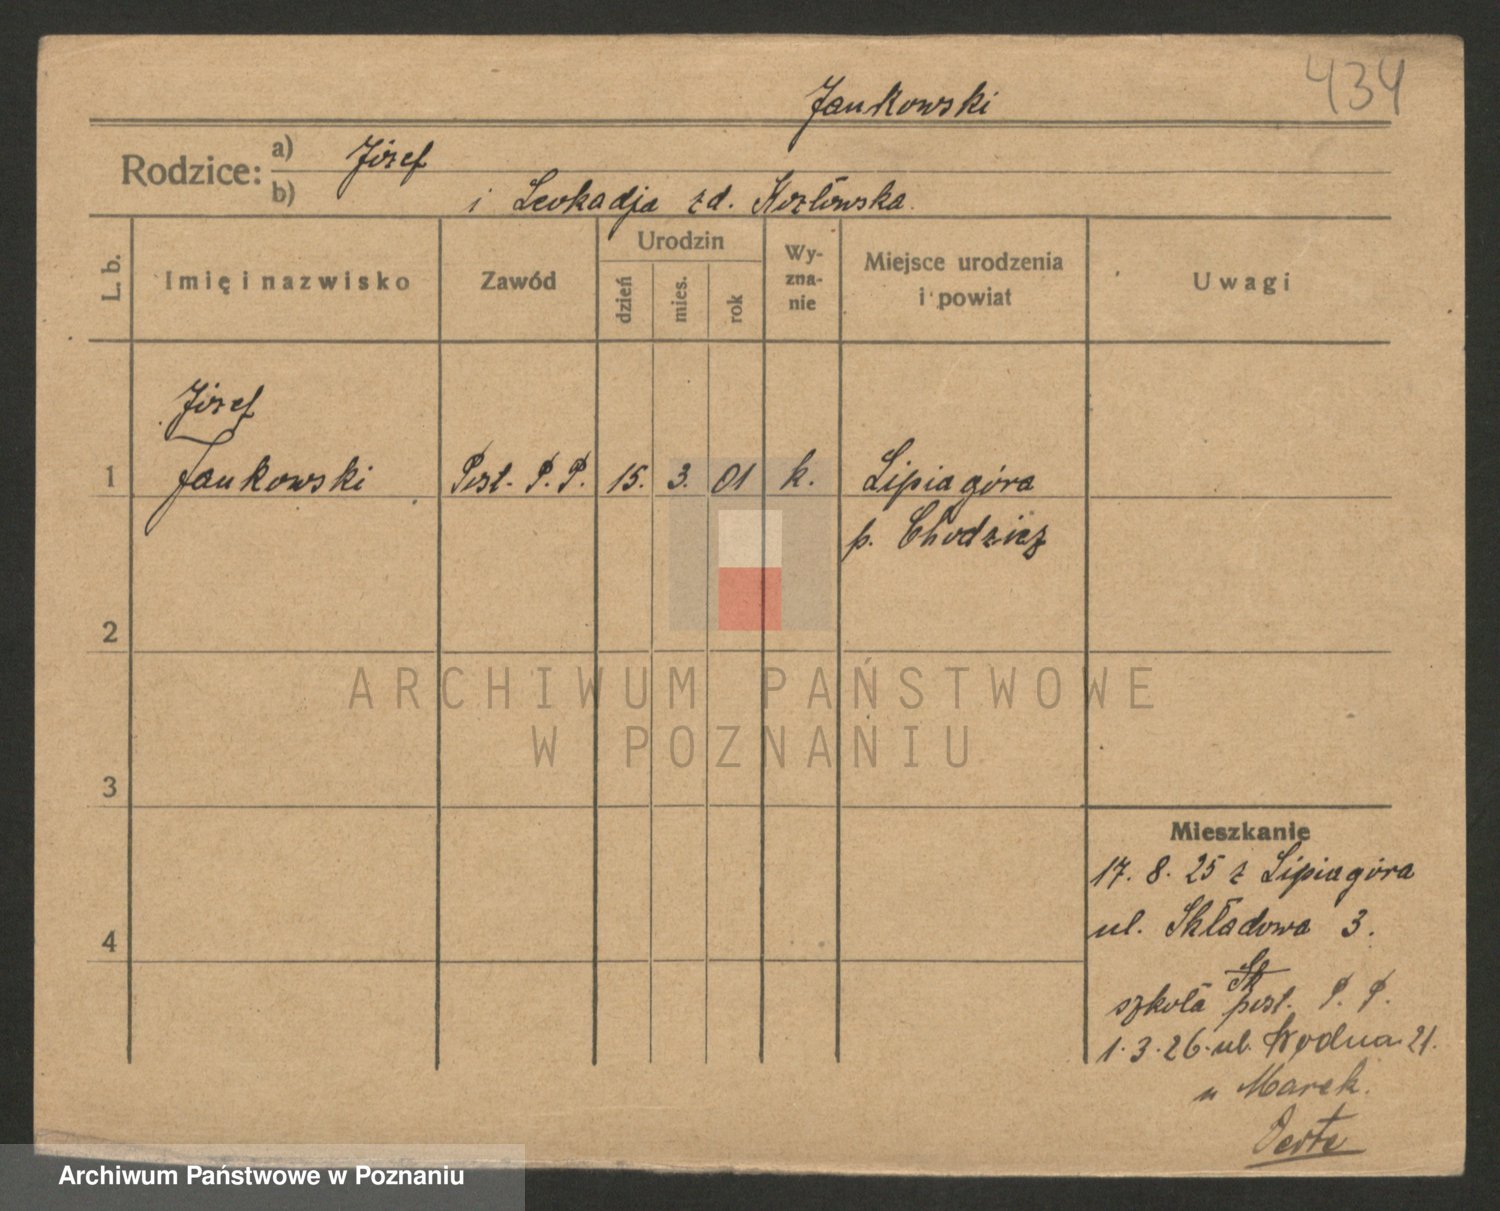 434
Jankowski
Rodzice:
a) Józef
b) i Leokadja zd. Kozłowska.
L. b.
Imię i nazwisko
Zawód
Urodzin
dzień
mies.
rok
Wy-
zna-
nie
Miejsce urodzenia
i powiat
Uwagi
Józef
1 Jankowski Post. P. P. 15. 3. 01 k. Lipiagóra
p. Chodzież
2
ARCHIWUM PAŃSTWOWE
W POZNANIU
3
Mieszkanie
17. 8. 25 z Lipiagóra
4
ul. Składowa 3.
szkoła post. P. P.
1.3.26. ul. Wodna 21.
u Marek.
Archiwum Państwowe w Poznaniu